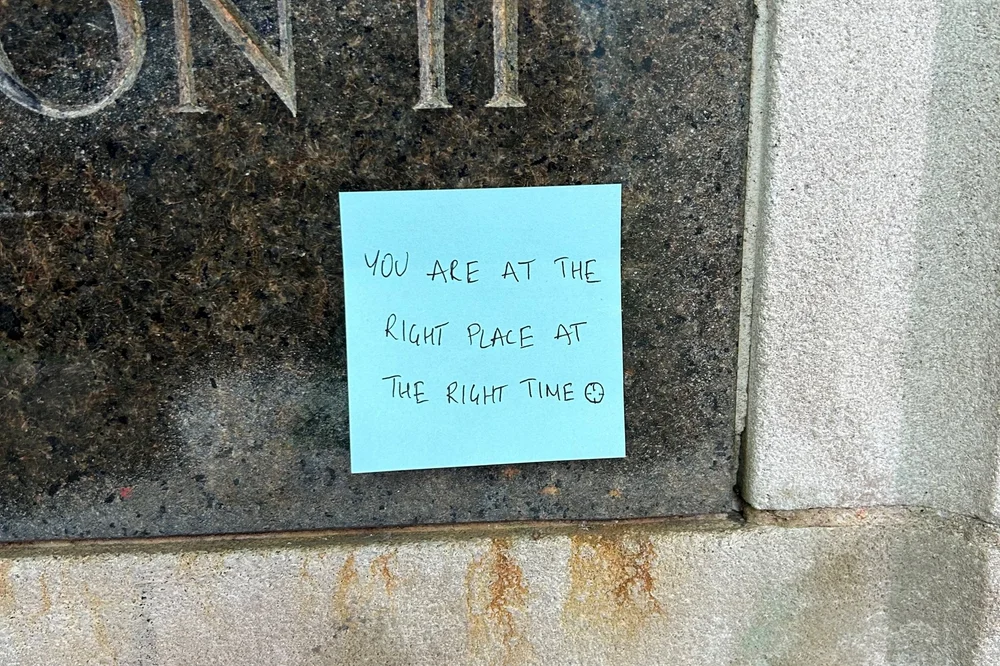 YOU ARE AT THE
RIGHT PLACE AT
THE RIGHT TIME